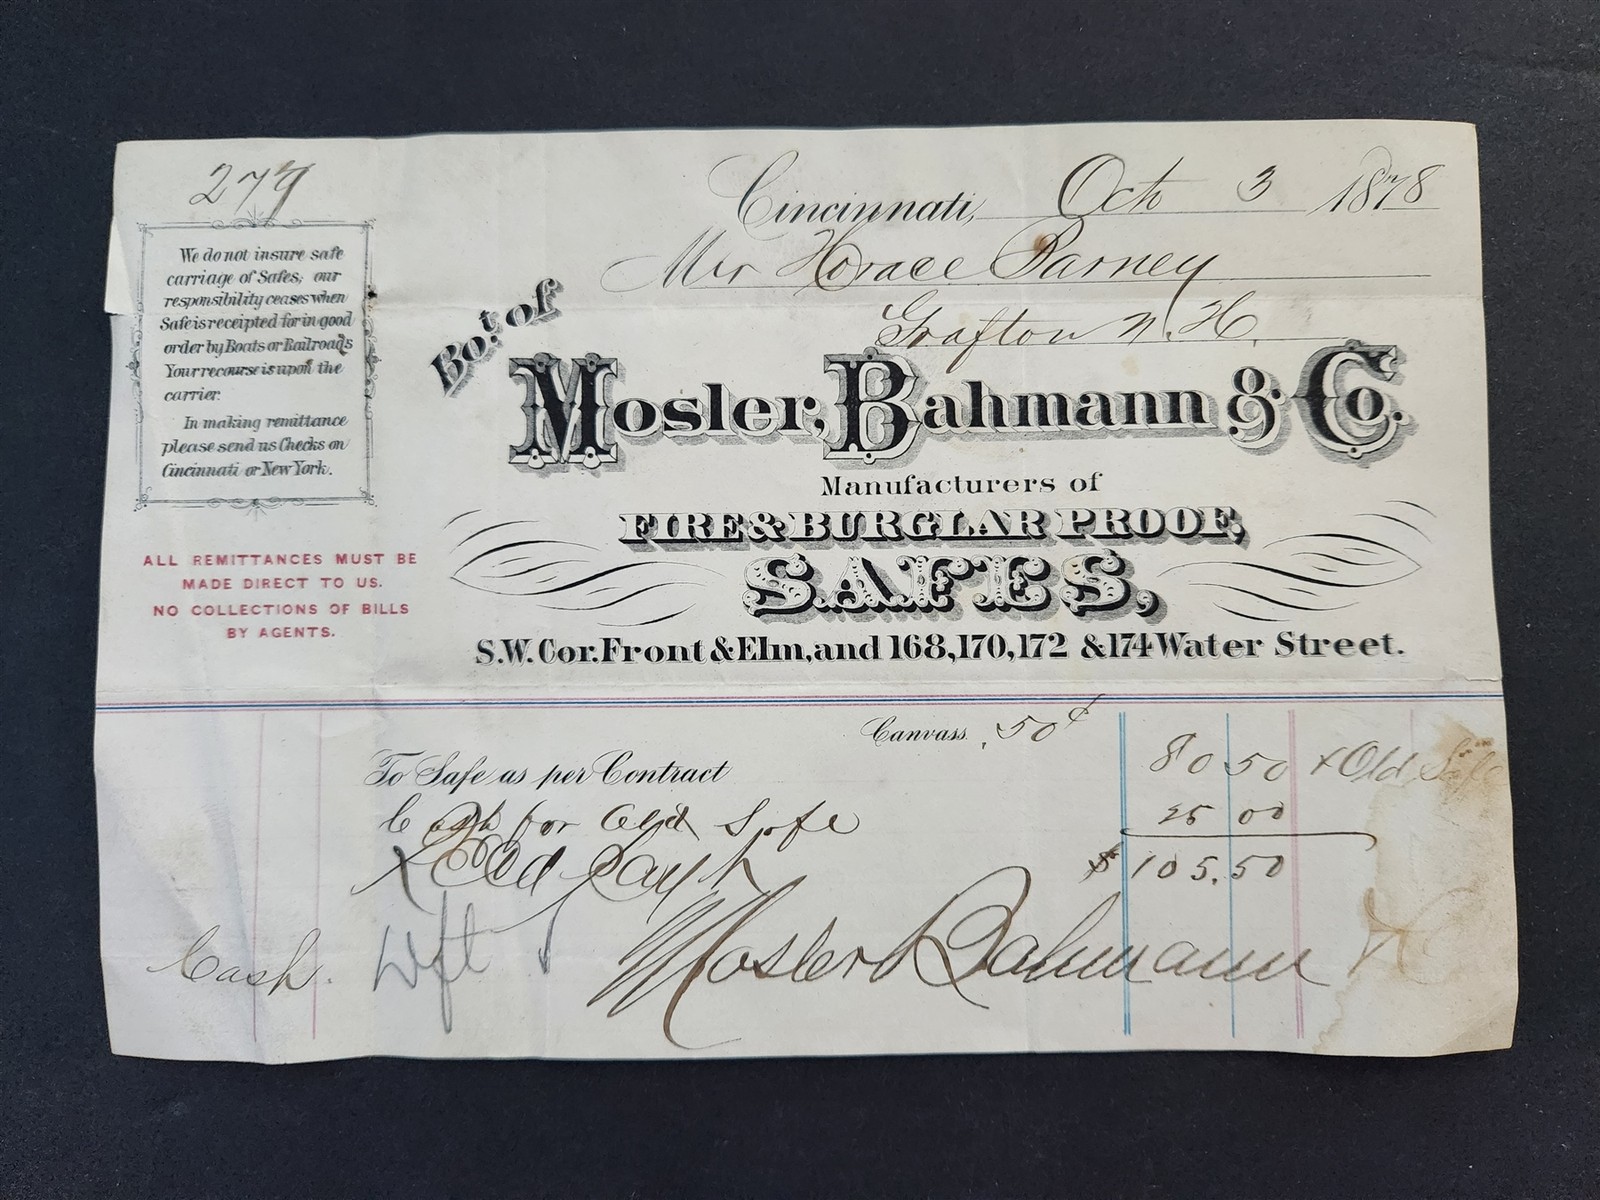 279
Cincinnati, Oct 3 1878
Mr Horace Barney
Grafton N. H.
Bo't of
Mosler, Bahmann & Co.
Manufacturers of
FIRE & BURGLAR PROOF,
SAFES,
S.W. Cor. Front & Elm, and 168, 170, 172 & 174 Water Street.
We do not insure safe
carriage of Safes; our
responsibility ceases when
Safe is receipted for in good
order by Boats or Railroads
Your recourse is upon the
carrier.
In making remittance
please send us Checks on
Cincinnati or New York.
ALL REMITTANCES MUST BE
MADE DIRECT TO US.
NO COLLECTIONS OF BILLS
BY AGENTS.
Canvass. 50¢
To Safe as per Contract 80 50 + Old Safe
Cash for Old Safe 25 00
$ 105.50
Mosler Bahmann & Co
Cash.